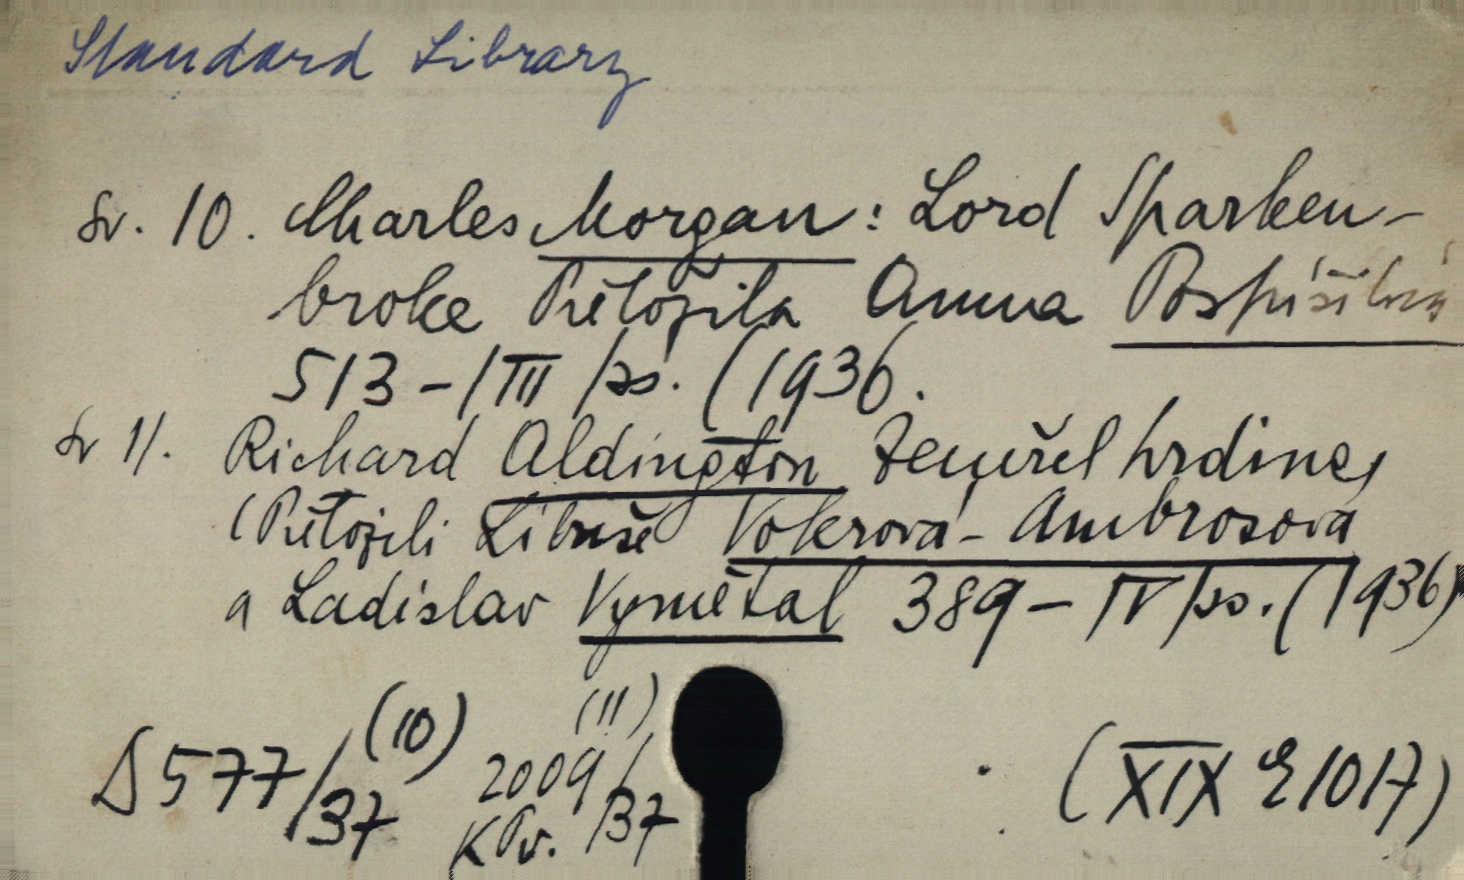 Standard Library
Sv. 10. Charles Morgan: Lord Sparken-
broke Přeložila Anna Pospíšilová
513 - I III /ss. (1936.
Sv 11. Richard Aldington Zemřel hrdina,
(Přeložili Libuše Vokrová - Ambrosová
a Ladislav Vymětal 389 - IV /ss. (1936)
577/37 (10) 2009/37 (11)
K Pv.
(XIX E 1017)